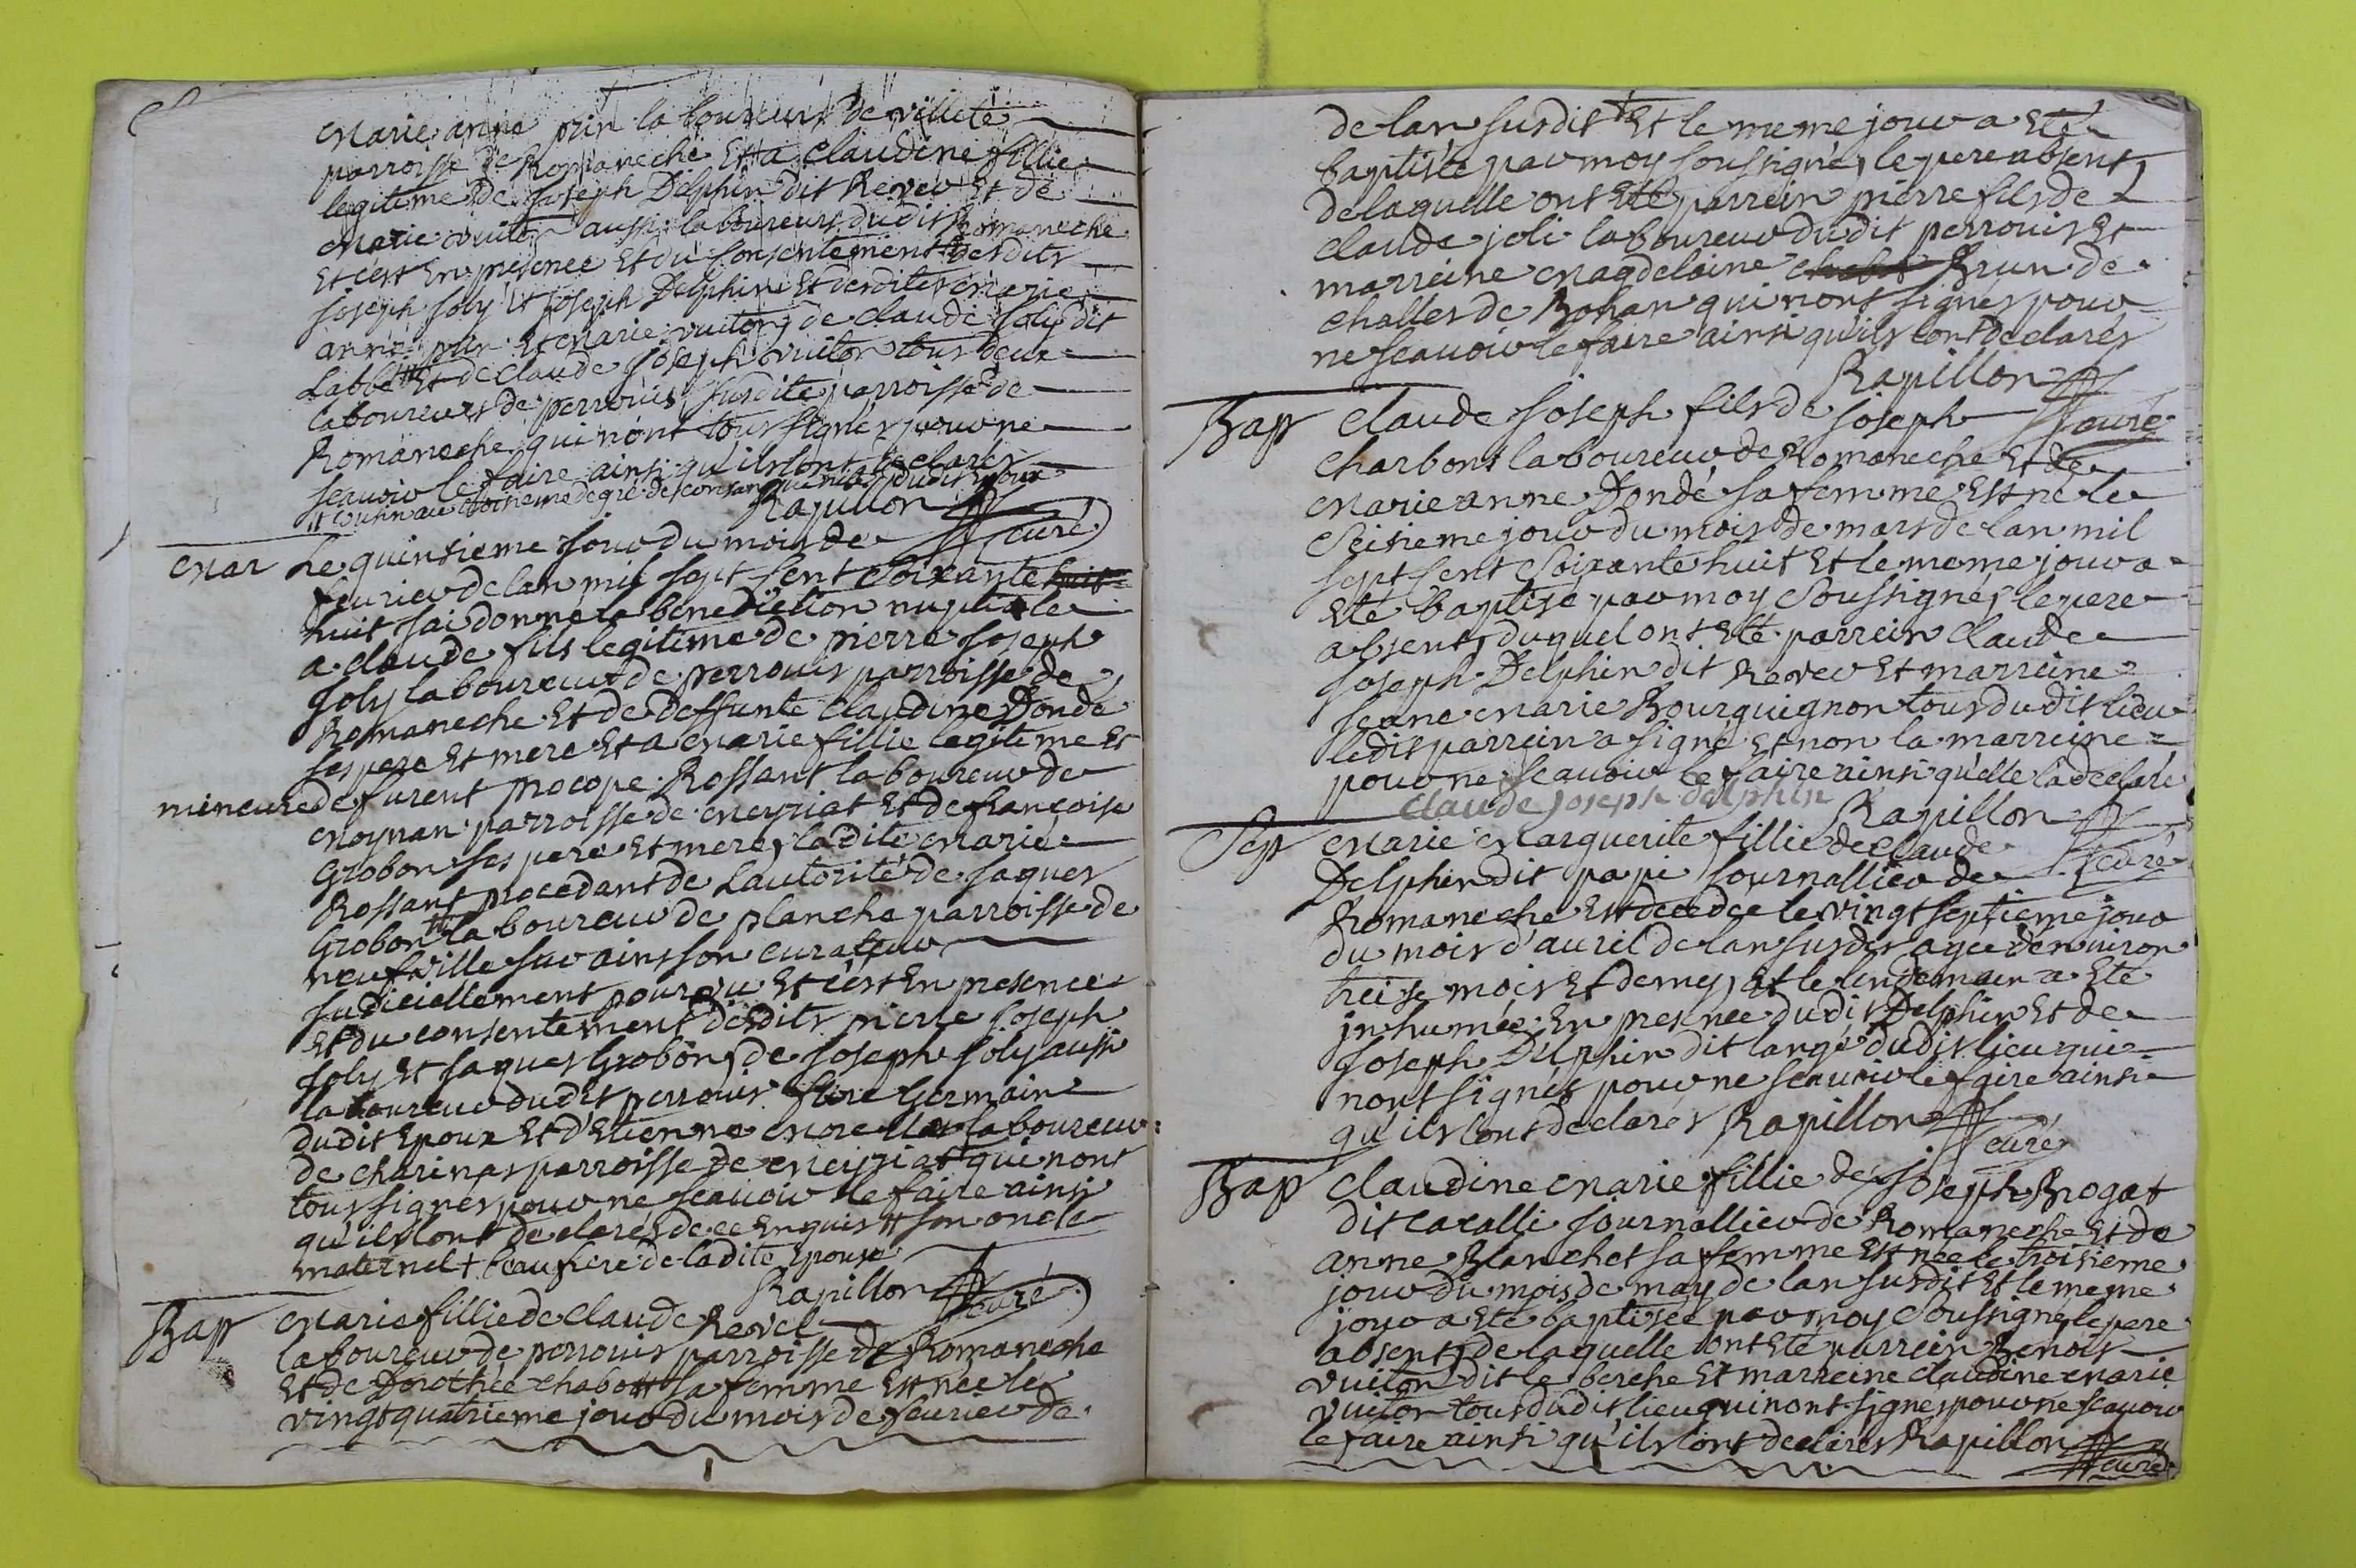 Marie anne prin laboureurs de villeté
parroisse de Romaneche Et a claudine fillie
legitime de Joseph Delphin dit Rever Et de
Marie vuiton aussi laboureurs dudit Romaneche
Et c'est En presence Et du consentement desdits
Joseph Joly Et Joseph Delphin Et desdites Marie
anne prin Et Marie vuiton, de claude Joly dit
Labbé Et de claude Joseph vuiton tous deux
laboureurs de perrouis susdite parroisse de
Romaneche qui n'ont tous signés pour ne
scauoir le faire ainsi qu'ils l'ont declarés
# cousin au troisieme degré de consanguinité dudit Epoux
Rapillon
curé
Mar Le quinsieme jour du mois de
feurier de lan mil sept sent soixante huit
huit j'ai donné la benediction nuptiale
a claude fils legitime de pierre Joseph
Joly laboureur de perrouis parroisse de
Romaneche Et de deffunte claudine Dondé
ses pere Et mere Et a Marie fillie legitime Et
mineure de furent procope Rossant laboureur de
Moynan parroisse de Meyriat Et de françoise
Grobon ses pere Et mere, ladite Marie
Rossant procedant de L'autorité de Jaques
Grobon # laboureur de planche parroisse de
neufville sur ains son curateur
judiciellement pourvu Et c'est En presence
Et du consentement desdits pierre Joseph
Joly Et Jaques Grobon, de Joseph Joly aussi
laboureur dudit perrouis frere Germain
dudit Epoux Et d'Etienne Morellet laboureur
de charinas parroisse de Meyriat + qui n'ont
tous signés pour ne scauoir le faire ainsi
qu'ils l'ont declarés de ce Enquis # son oncle
maternel + beaufrere de ladite Epouse
Rapillon
curé
Bap Marie fillie de claude Revel
laboureur de perrouis parroisse de Romaneche
Et de Dorothée chabott sa femme Est née le
vingt quatrieme jour du mois de feurier de
de lan susdit Et le meme jour a Eté
baptisée par moy soussigné, le pere absent,
de laquelle ont Eté parrein pierre fils de
claude joli laboureur dudit perrouis Et
marreine Magdelaine chabot Brun de
challes de Bohan qui n'ont signés pour
ne scauoir le faire ainsi qu'ils l'ont declarés
Rapillon
curé
Bap Claude Joseph fils de Joseph
charbont laboureur de Romaneche Et de
Marie anne Dondé sa femme Est né le
seisieme jour du mois de mars de lan mil
sept sent soixante huit Et le meme jour a
Eté baptisé par moy soussigné, le pere
absent, duquel ont Eté parrein claude
Joseph Delphin dit Rever Et marreine
Jeanne Marie Bourguignon tous dudit lieu
ledit parrein a signé et non la marreine
pour ne scauoir le faire ainsi qu'elle l'a declaré
Claude joseph delphin
Rapillon
curé
Sep Marie Marguerite fillie de claude
Delphin dit papi journallier de
Romaneche Est decedée le vingt septieme jour
du mois d'auril de lan susdit agée d'enuiron
treise mois Et demy, Et le lendemain a Eté
inhumée En presence dudit Delphin Et de
Joseph Delphin dit langé dudit lieu qui
n'ont signés pour ne scauoir le faire ainsi
qu'ils l'ont declarés Rapillon
curé
Bap Claudine Marie fillie de Joseph Brogat
dit cavalli journallier de Romaneche Et de
anne Blanchet sa femme Est née le troisieme
jour du mois de may de lan susdit Et le meme
jour a Eté baptisée par moy soussigné, le pere
absent, de laquelle ont Eté parrein Benoit
vuiton dit le berche Et marreine claudine Marie
vuiton tous dudit lieu qui n'ont signés pour ne scauoir
le faire ainsi qu'ils l'ont declarés Rapillon
curé